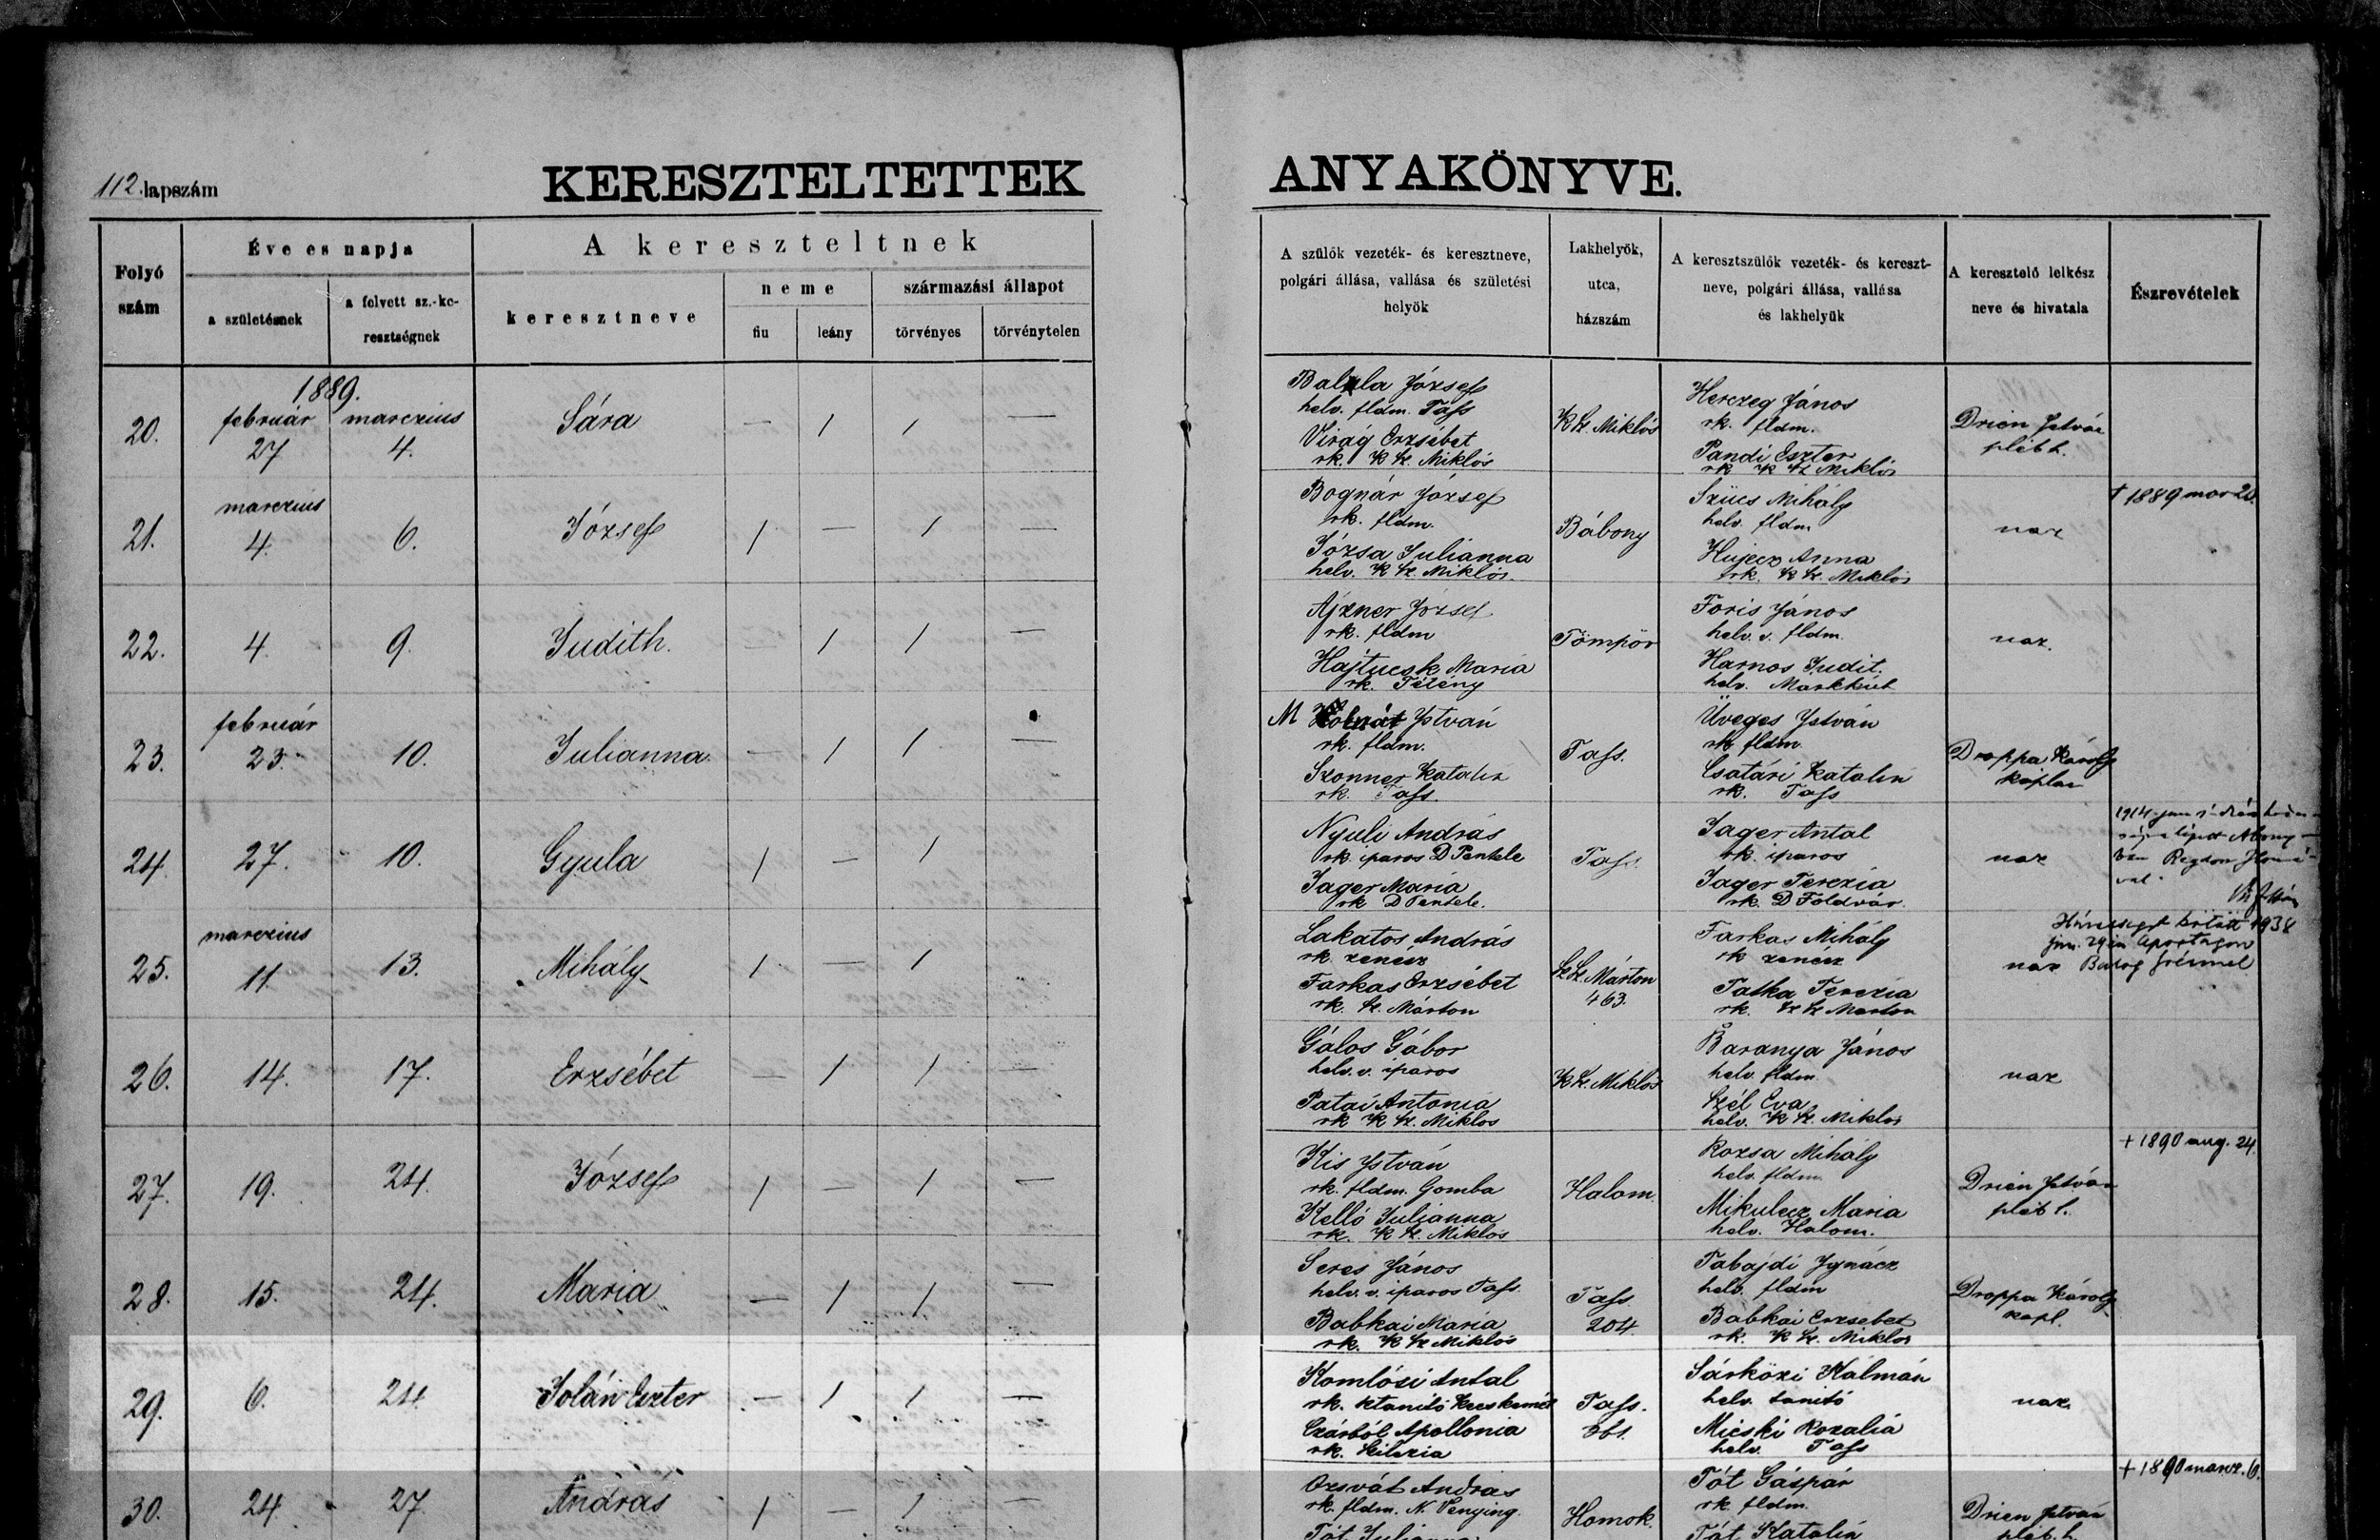 112. lapszám
KERESZTELTETTEK ANYAKÖNYVE.
Folyó szám
Éve es napja
a születésnek
a felvett sz.-keresztségnek
A kereszteltnek
keresztneve
neme
fiu
leány
származási állapot
törvényes
törvénytelen
A szülők vezeték- és keresztneve,
polgári állása, vallása és születési
helyök
Lakhelyök,
utca,
házszám
A keresztszülők vezeték- és kereszt-
neve, polgári állása, vallása
és lakhelyük
A keresztelő lelkész
neve és hivatala
Észrevételek
1889.
20. február 27 marczius 4. Sára — 1 1 —
József
helv. fldm. Tass
Virág Erzsébet
rk. K Sz. Miklós
K Sz. Miklós
Herczeg János
rk. fldm.
Pandi Eszter
rk K Sz Miklós
Drien István
pléb h.
21. marczius 4. 6. József 1 — 1 —
Bognár József
rk. fldm.
Józsa Julianna
helv. K Sz. Miklós.
Bábony
Szücs Mihály
helv. fldm
Anna
rk. K Sz. Miklós
† 1889 mar 20.
22. 4. 9. Judith. — 1 1 —
Ajzner József
rk. fldm
Maria
rk. Tétény
Tömpör
Foris János
helv. v. fldm.
Harnos Judit.
helv.
23. február 23. 10. Julianna — 1 1 —
M István
rk. fldm.
Szonner Katalin
rk. Tass.
Tass.
Üveges István
rk fldm
Csatári Katalin
rk. Tass
Droppa Károly
káplan
24. 27. 10. Gyula 1 — 1
Nyuli András
rk. iparos D Pentele
Jager Maria
rk D Pentele.
Tass.
Jager Antal
rk. iparos
Jager Terezia
rk. D Földvár.
1914 jun
Abony-
ban
25. marczius 11. 13. Mihály 1 — 1
Lakatos András
rk. zenész
Farkas Erzsébet
rk. Sz. Márton
Sz Sz. Márton
463.
Farkas Mihály
rk zenész
Patka Terezia
rk. Sz Sz Marton
kötött 1938
Apostagon
26. 14. 17. Erzsébet — 1 1 —
Gálos Gábor
helv. v. iparos
Patai Antonia
rk K Sz. Miklos
K Sz. Miklós
Baranya János
helv. fldm
Szél Eva
helv. K Sz. Miklos
27. 19. 24. József 1 — 1 —
Kis István
rk. fldm. Gomba
Kelló Julianna
rk. K Sz. Miklós
Halom.
Rozsa Mihály
helv. fldm.
Mikulecz Maria
helv. Halom.
Drien István
pleb h.
+ 1890 aug. 24.
28. 15. 24. Maria — 1 1 —
Seres János
helv. v. iparos Tass.
Babkai Maria
rk. K Sz Miklós
Tass.
204.
Tabajdi Ignácz
helv. fldm
Babkai Erzsebet
rk. K Sz. Miklos
Droppa Károly
kapl.
29. 6. 24. Jolán Eszter — 1 1 —
Komlósi Antal
rk. ktanitó Kecskemét
Apollonia
rk. Szilezia
Tass.
Sárközi Kálmán
helv. tanitó
Micski Rozalia
helv. Tass
30. 24. 27. András 1 — 1 —
Orsvát András
rk. fldm. N. Venying.
Tót Julianna
Homok.
Tót Gáspár
rk. fldm.
Tót Katalin
Drien István
pléb. h.
+ 1890 marz. 6.